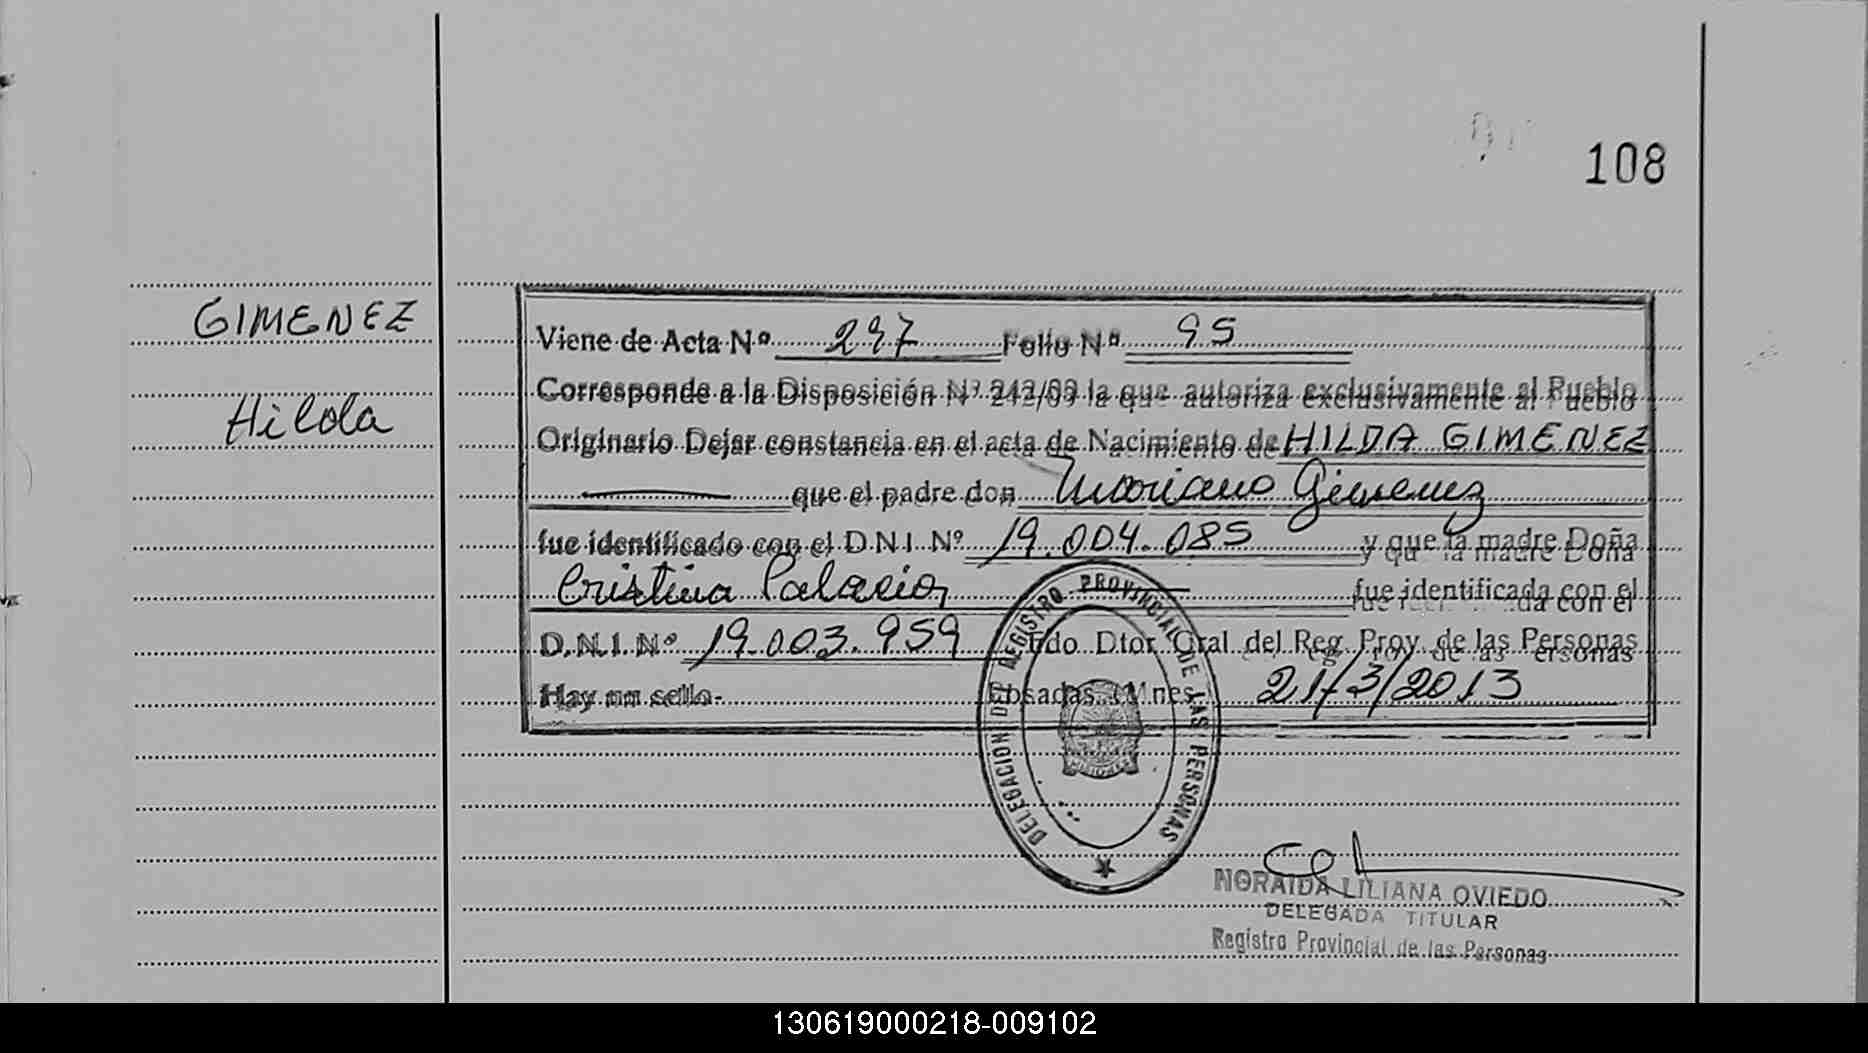 108
GIMENEZ
Hilda
Viene de Acta Nº 297 Folio Nº 95
Corresponde a la Disposición Nº 242/09 la que autoriza exclusivamente al Pueblo
Originario Dejar constancia en el acta de Nacimiento de HILDA GIMENEZ
que el padre don Mariano Gimenez
fue identificado con el D.N.I. Nº 19.004.085 y que la madre Doña
Cristina Palacios fue identificada con el
D.N.I. Nº 19.003.959 Fdo Dtor Gral del Reg. Prov. de las Personas
Hay un sello- Posadas (Mnes 21/3/2013
DELEGACION DEL REGISTRO PROVINCIAL DE LAS PERSONAS
MISIONES
NORAIDA LILIANA OVIEDO
DELEGADA TITULAR
Registro Provincial de las Personas
130619000218-009102